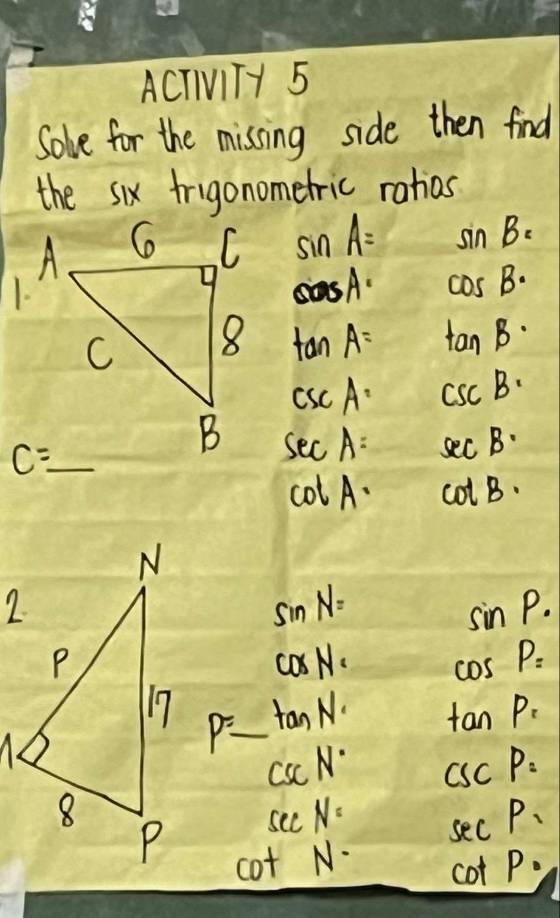 ACTIVITY 5
Solve for the missing side then find
the six trigonometric ratios
1.
A 6 C
C 8
B
C=__
sin A= sin B=
cos A= cos B=
tan A= tan B=
csc A= csc B=
sec A= sec B=
cot A= cot B=
2.
N
P 17
8
P
P=__
sin N= sin P=
cos N= cos P=
tan N= tan P=
csc N= csc P=
sec N= sec P=
cot N= cot P=